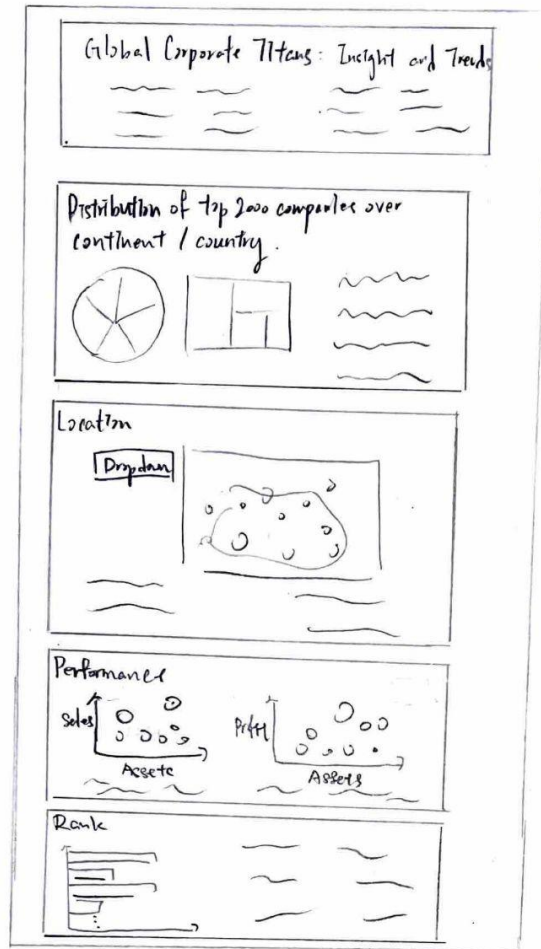 Global Corporate Titans: Insight and Trends
Distribution of top 2000 companies over
continent / country.
Location
Dropdown
Performance
Sales
Assets
Profit
Assets
Rank